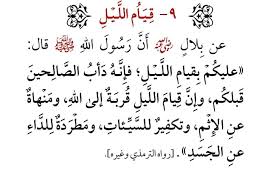 ٩- قِيَامُ اللَّيْلِ
عن بِلالٍ رضي الله عنه أَنَّ رَسُولَ اللهِ ﷺ قال:
«عليكُمْ بِقِيامِ اللَّيْلِ؛ فإِنَّهُ دَأْبُ الصَّالِحِينَ
قَبلَكُم، وإِنَّ قِيَامَ اللَّيلِ قُرْبَةٌ إلى اللهِ، ومَنْهاةٌ
عن الإِثْمِ، وتَكفِيرٌ للسَّيِّئاتِ، ومَطْرَدَةٌ للدَّاءِ
عن الجَسَدِ». [رواه الترمذي وغيره].